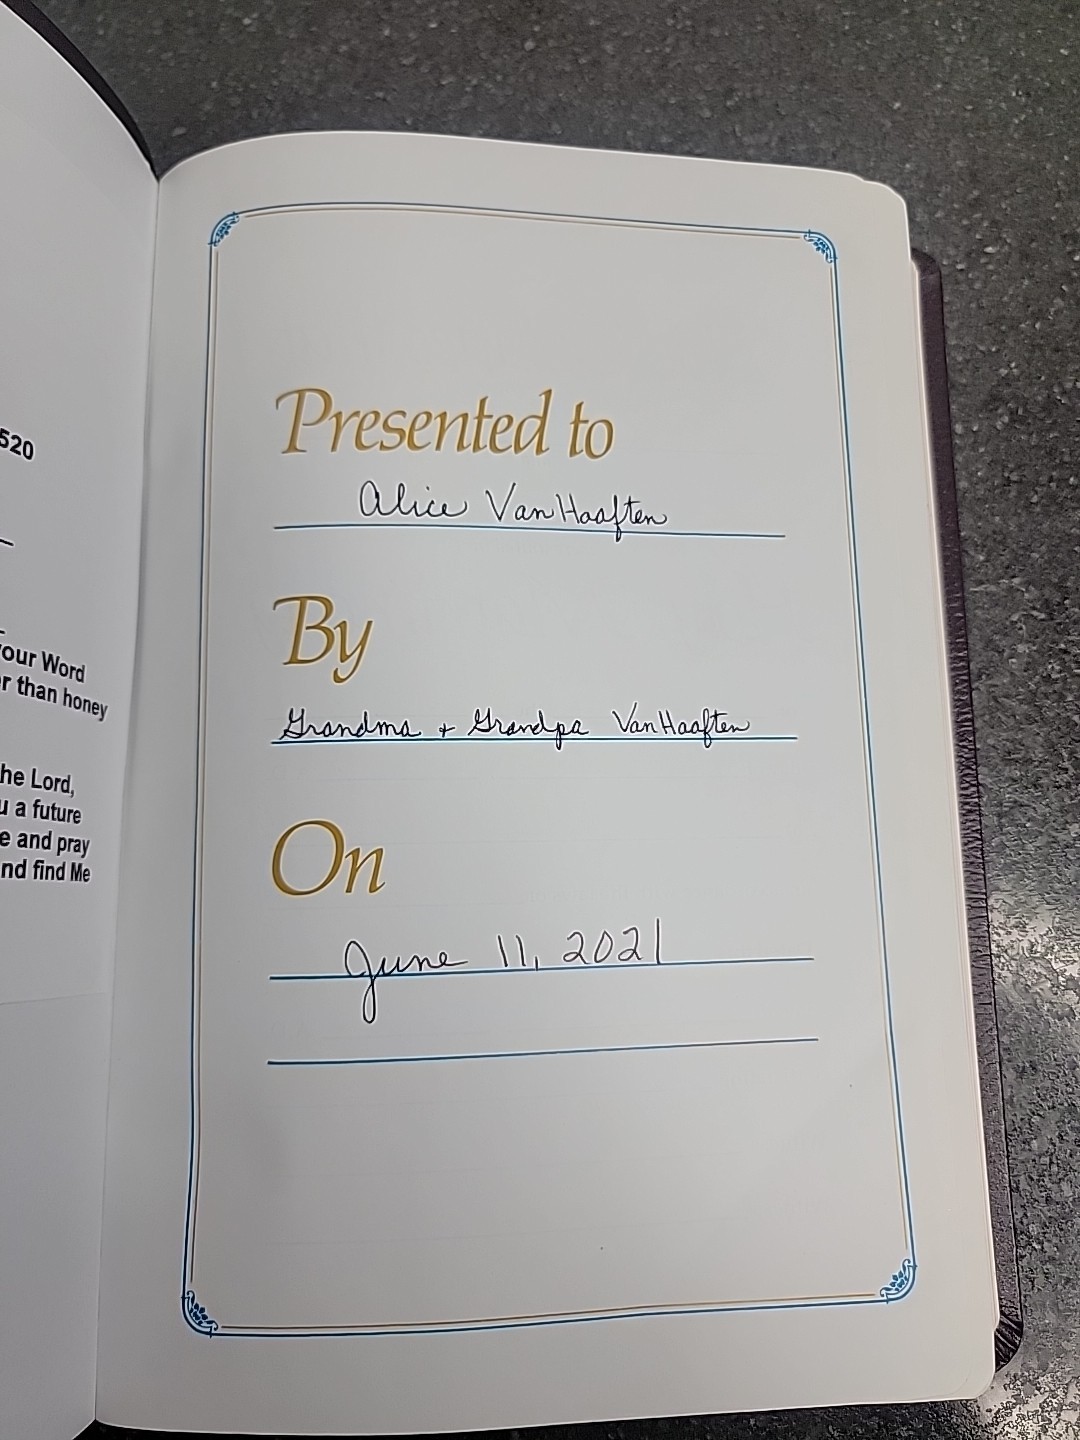 520
our Word
than honey
he Lord,
a future
and pray
nd find Me
Presented to
Alice VanHaaften
By
Grandma + Grandpa VanHaaften
On
June 11, 2021